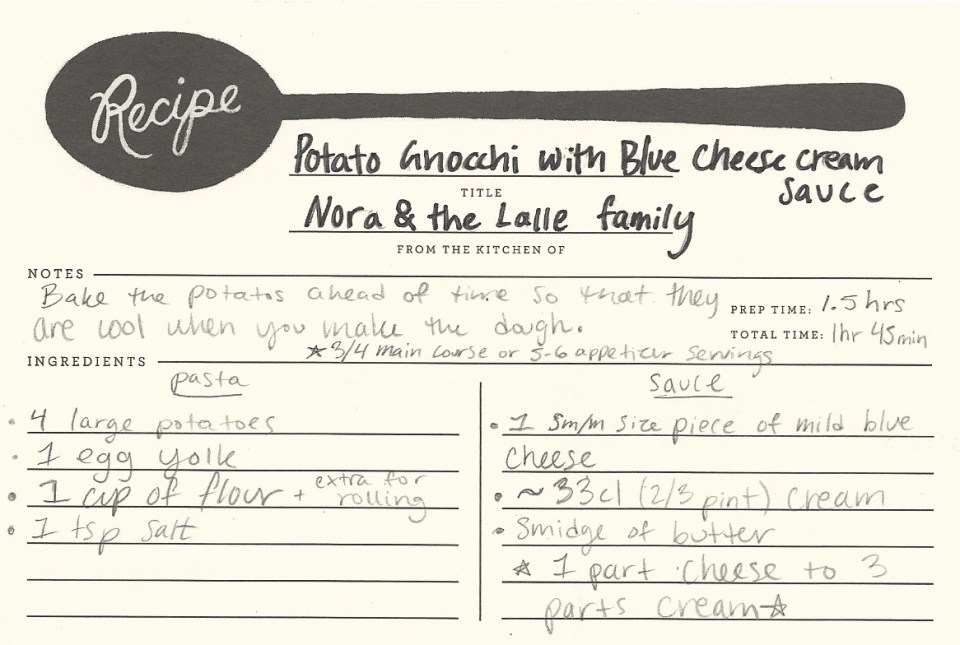 Recipe
Potato Gnocchi with Blue Cheese cream
sauce
TITLE
Nora & the Lalle family
FROM THE KITCHEN OF
NOTES
Bake the potatos ahead of time so that they
are cool when you make the dough.
☆ 3/4 main course or 5-6 appetizer servings
PREP TIME: 1.5 hrs
TOTAL TIME: 1hr 45min
INGREDIENTS
pasta
• 4 large potatoes
• 1 egg yolk
• 1 cup of flour + extra for
rolling
• 1 tsp salt
sauce
• 1 sm/m size piece of mild blue
cheese
• ~ 33cl (2/3 pint) cream
• Smidge of butter
☆ 1 part cheese to 3
parts cream ☆